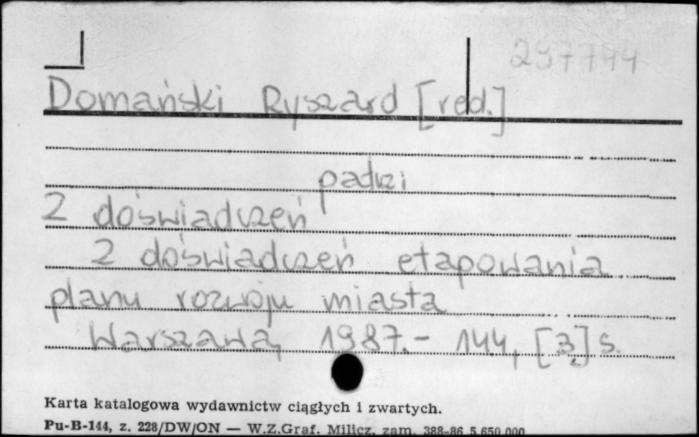 297744
Domański Ryszard [red.]
padzi
2 doświadczeń
2 doświadczeń etapowania
planu rozwoju miasta
Warszawa, 1987.- 144, [3] s.
Karta katalogowa wydawnictw ciągłych i zwartych.
Pu-B-144, z. 228/DW/ON — W.Z.Graf. Milicz, zam. 388-86 5.650.000